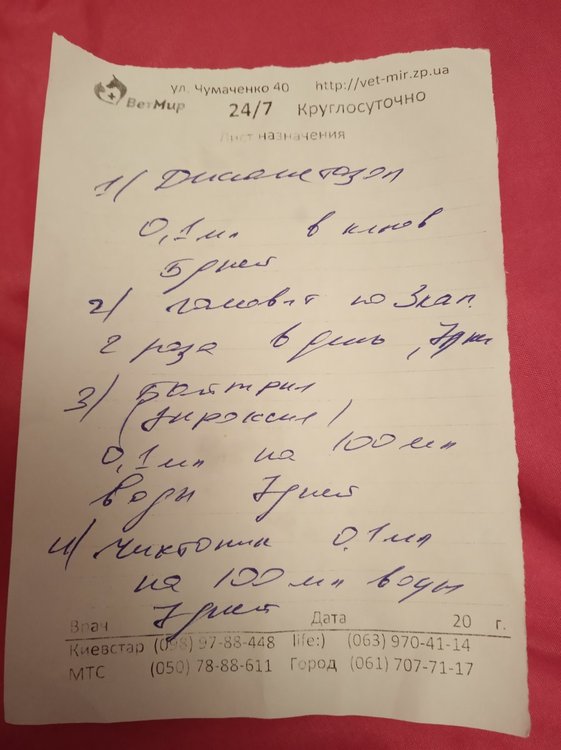 ул. Чумаченко 40 http://vet-mir.zp.ua
ВетМир 24/7 Круглосуточно
Лист назначения
1)
0,1мл в клюв
5 дней
2) гамовит по 3кап.
2 раза в день, 7дн
3) Байтрил
0,1мл на 100мл
воды 7дней
4) Чиктоник 0,1мл
на 100мл воды
7дней
Врач Дата 20 г.
Киевстар (098) 97-88-448 life:) (063) 970-41-14
МТС (050) 78-88-611 Город (061) 707-71-17